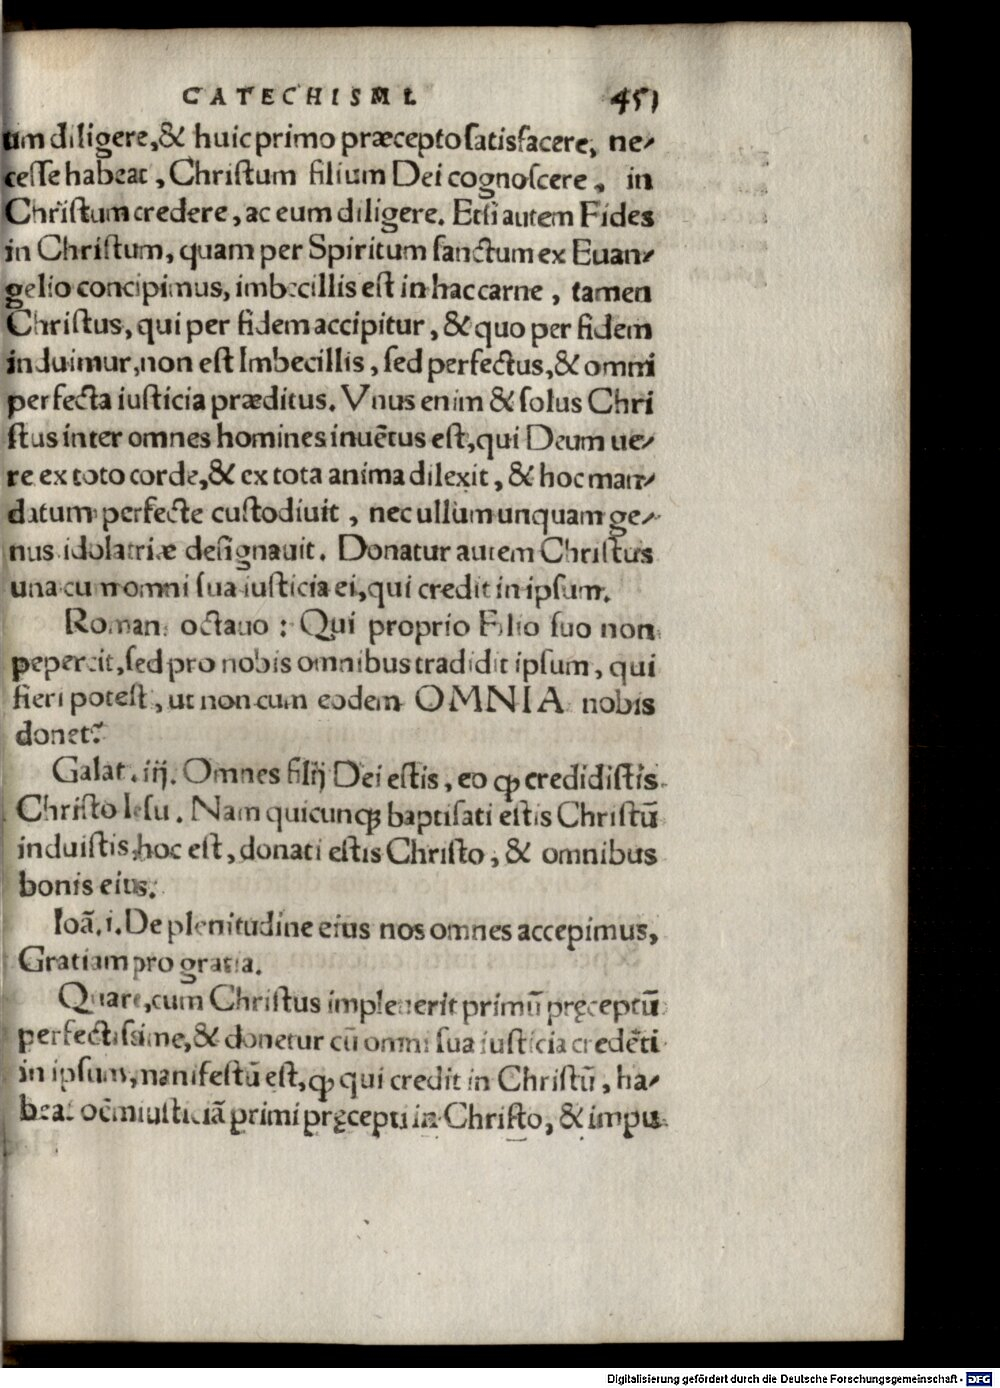 CATECHISMI. 451
um diligere, & huic primo præcepto ſatisfacere, ne⸗
ceſſe habeat, Chriſtum filium Dei cognoſcere, in
Chriſtum credere, ac eum diligere. Etſi autem Fides
in Chriſtum, quam per Spiritum ſanctum ex Euan⸗
gelio concipimus, imbecillis eſt in hac carne, tamen
Chriſtus, qui per fidem accipitur, & quo per fidem
induimur, non eſt Imbecillis, ſed perfectus, & omni
perfecta iuſticia præditus. Vnus enim & ſolus Chri
ſtus inter omnes homines inuẽtus eſt, qui Deum ue⸗
re ex toto corde, & ex tota anima dilexit, & hoc man⸗
datum perfecte cuſtodiuit, nec ullum unquam ge⸗
nus idolatriæ deſignauit. Donatur autem Chriſtus
una cum omni ſua iuſticia ei, qui credit in ipſum.
Roman. octauo: Qui proprio Filio ſuo non
pepercit, ſed pro nobis omnibus tradidit ipſum, qui
fieri poteſt, ut non cum eodem OMNIA nobis
donet?
Galat. iij. Omnes filij Dei eſtis, eo ꝙ credidiſtis
Chriſto Ieſu. Nam quicunꝙ baptiſati eſtis Chriſtũ
induiſtis, hoc eſt, donati eſtis Chriſto, & omnibus
bonis eius.
Ioã. i. De plenitudine eius nos omnes accepimus,
Gratiam pro gratia.
Quare, cum Chriſtus impleuerit primũ pręceptũ
perfectiſsime, & donetur cũ omni ſua iuſticia credẽti
in ipſum, manifeſtũ eſt, ꝙ qui credit in Chriſtũ, ha⸗
beat oẽm iuſticiã primi pręcepti in Chriſto, & impu
Digitalisierung gefördert durch die Deutsche Forschungsgemeinschaft - DFG